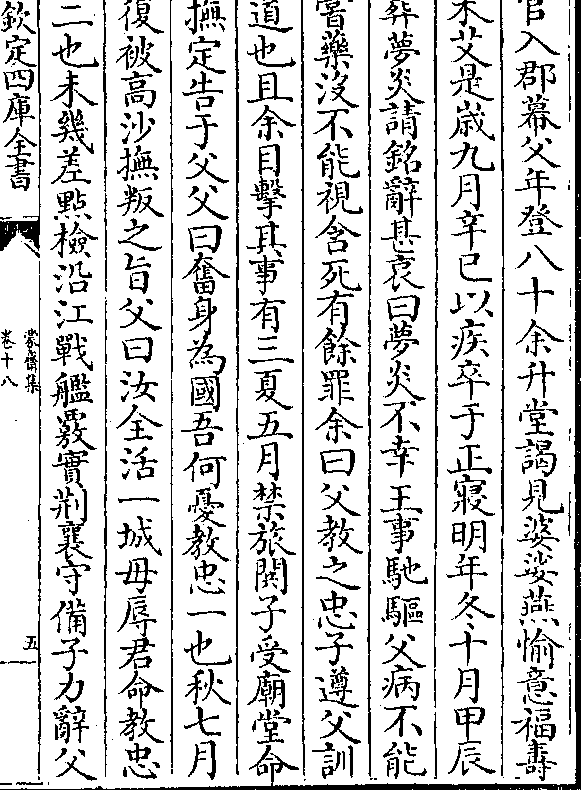 官入郡幕父年登八十余升堂謁見婆娑燕愉意福壽
未艾是嵗九月辛巳以疾卒于正寢明年冬十月甲辰
葬夢炎請銘辭甚哀曰夢炎不幸王事馳驅父病不能
嘗藥沒不能視含死有餘罪余曰父教之忠子遵父訓
道也且余目擊其事有三夏五月禁旅閧子受廟堂命
撫定告于父父曰奮身為國吾何憂教忠一也秋七月
復被高沙撫叛之㫖父曰汝全活一城毋辱君命教忠
二也未幾差點檢沿江戰艦覈實荆襄守備子力辭父
欽定四庫全書
蒙齋集
卷十八
五